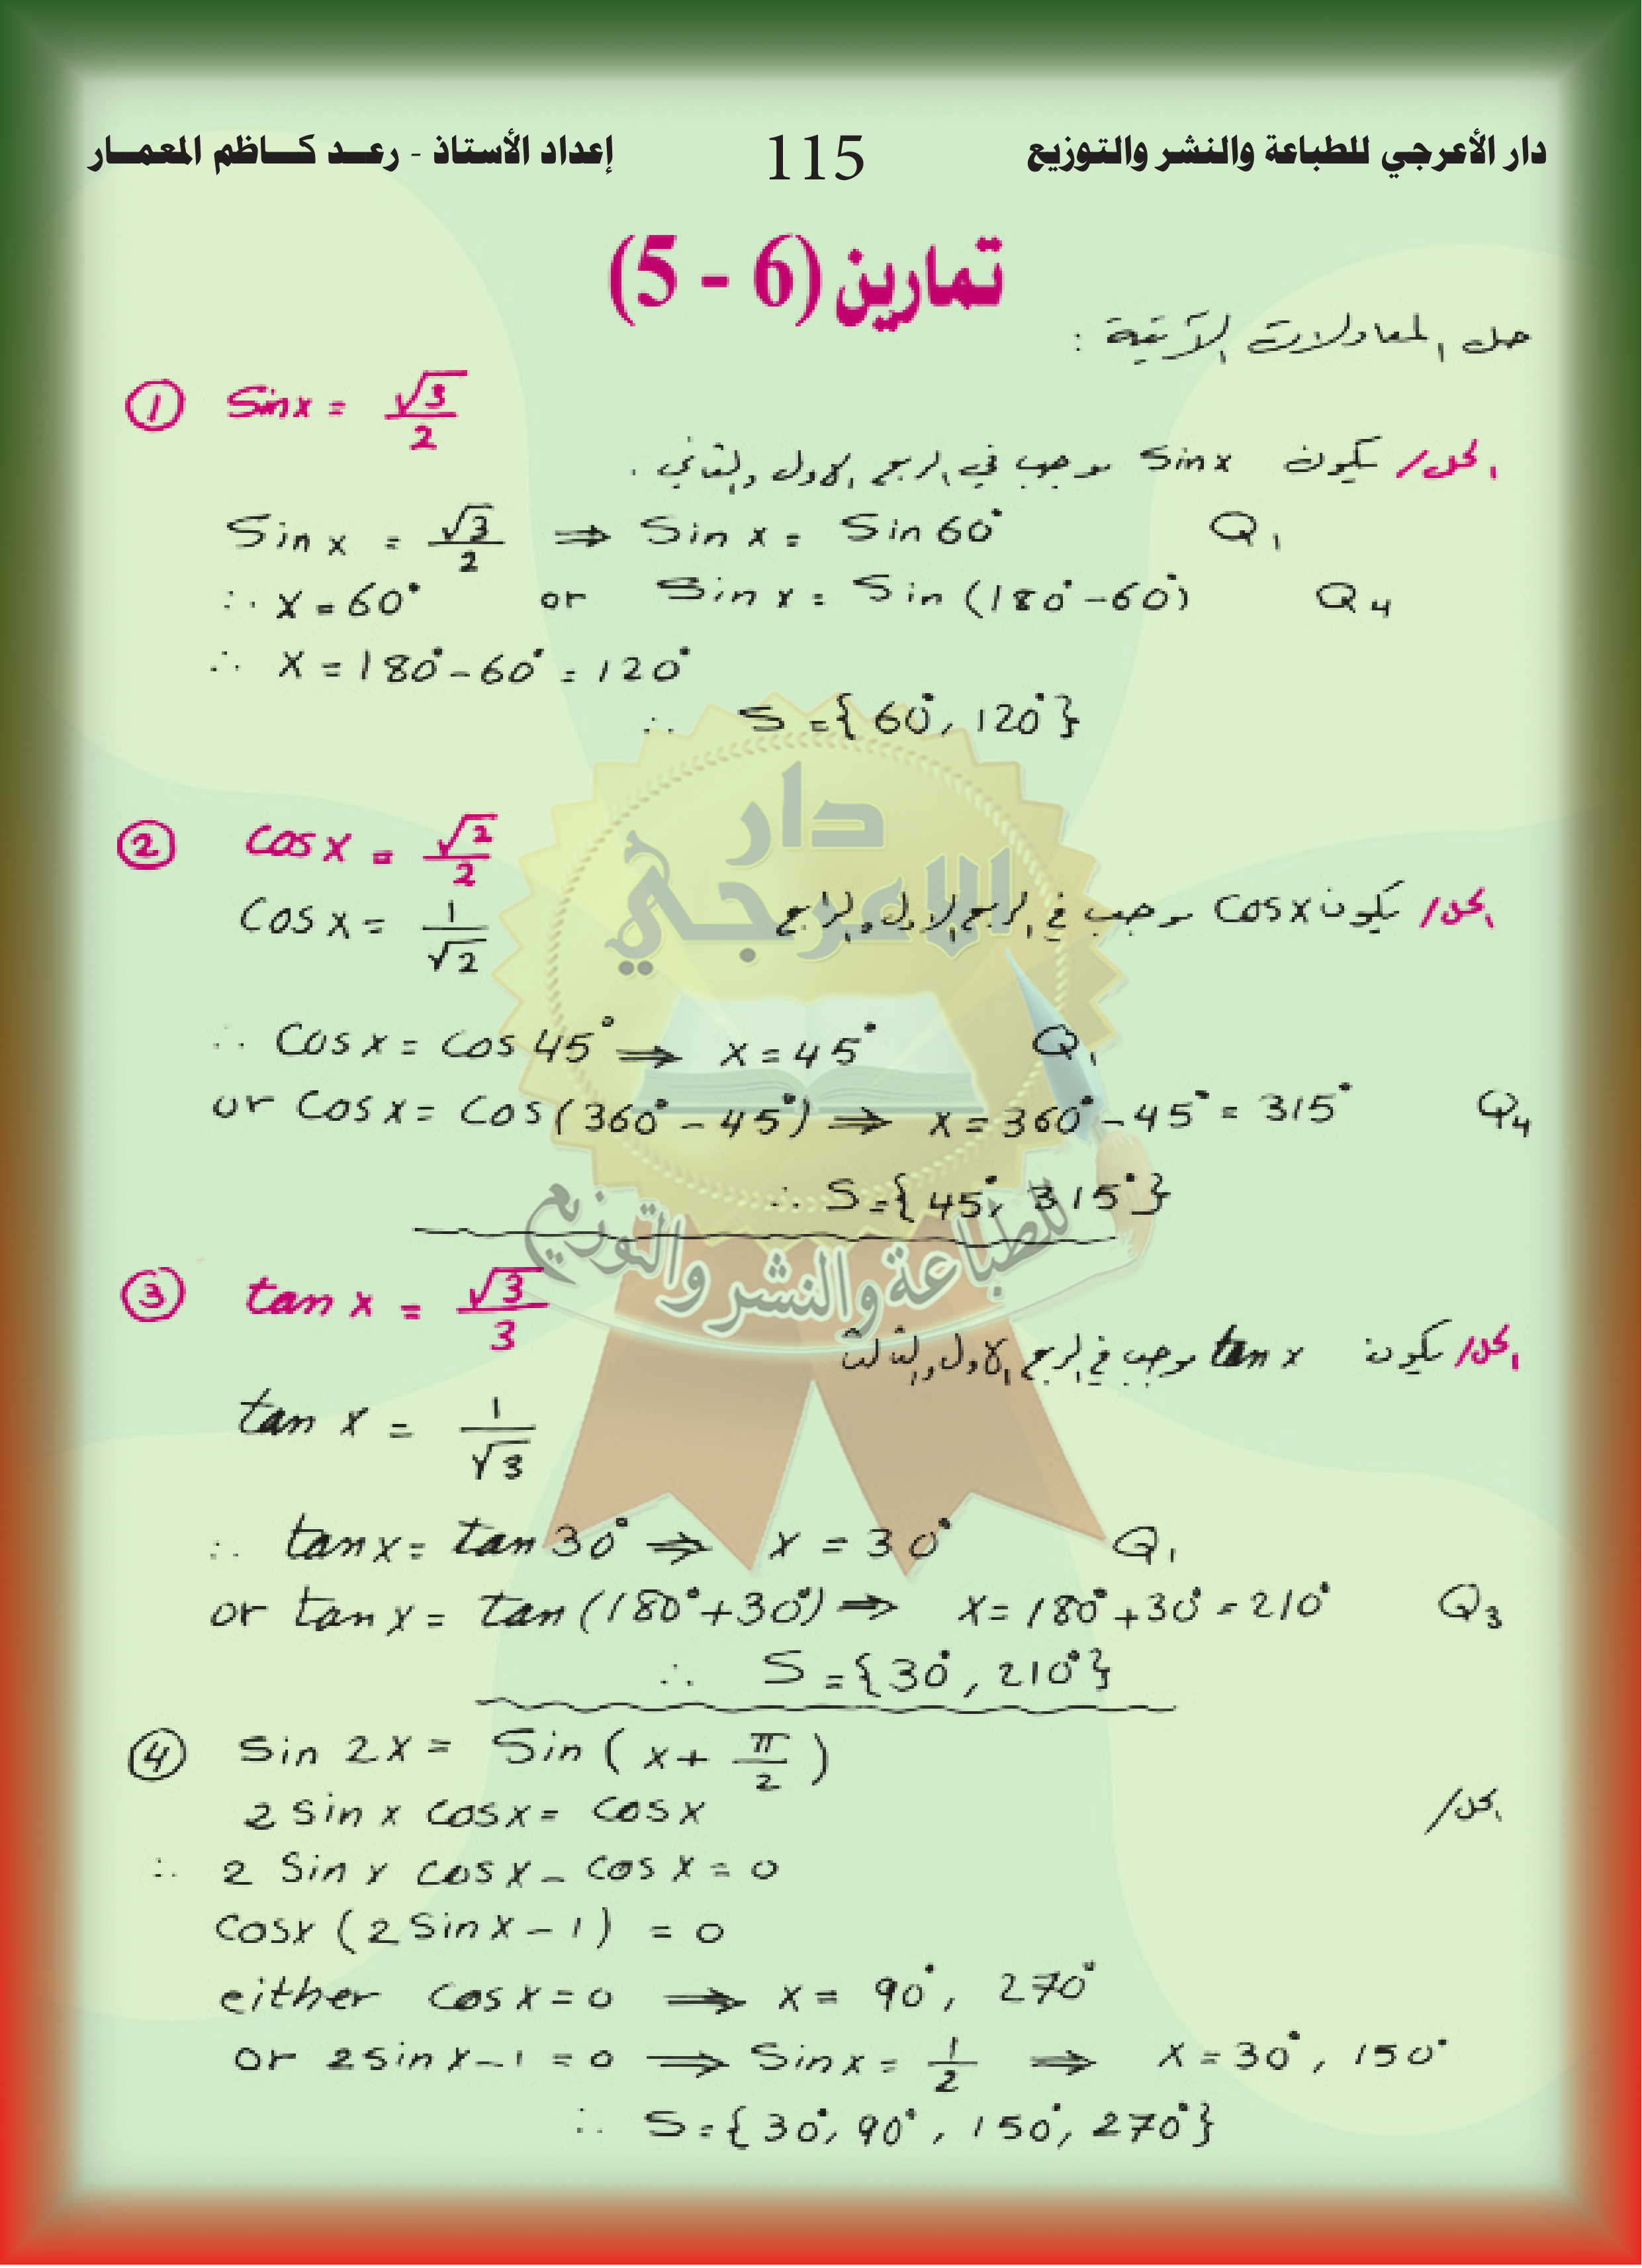 دار الأعرجي للطباعة والنشر والتوزيع 115 إعداد الأستاذ - رعـد كـاظم المعمـار
تمارين (6 - 5)
حل المعادلات الآتية :
① Sinx = √3/2
الحل/ يكون Sinx موجب في الربع الاول والثاني .
Sinx = √3/2 ⇒ Sinx = Sin60° Q₁
∴ x = 60° or Sinx = Sin(180° - 60°) Q₄
∴ x = 180° - 60° = 120°
∴ S = {60°, 120°}
② Cosx = √2/2
الحل/ يكون Cosx موجب في الربع الاول والرابع
Cosx = 1/√2
∴ Cosx = Cos45° ⇒ x = 45° Q₁
or Cosx = Cos(360° - 45°) ⇒ x = 360° - 45° = 315° Q₄
∴ S = {45°, 315°}
③ tan x = √3/3
الحل/ يكون tan x موجب في الربع الاول والثالث
tan x = 1/√3
∴ tanx = tan30° ⇒ x = 30° Q₁
or tanx = tan(180° + 30°) ⇒ x = 180° + 30° = 210° Q₃
∴ S = {30°, 210°}
④ Sin 2x = Sin(x + π/2)
الحل/
2 Sinx Cosx = Cosx
∴ 2 Sinx Cosx - Cosx = 0
Cosx(2Sinx - 1) = 0
either Cosx = 0 ⇒ x = 90°, 270°
or 2Sinx - 1 = 0 ⇒ Sinx = 1/2 ⇒ x = 30°, 150°
∴ S = {30°, 90°, 150°, 270°}
دار
الاعرجي
للطباعة والنشر والتوزيع